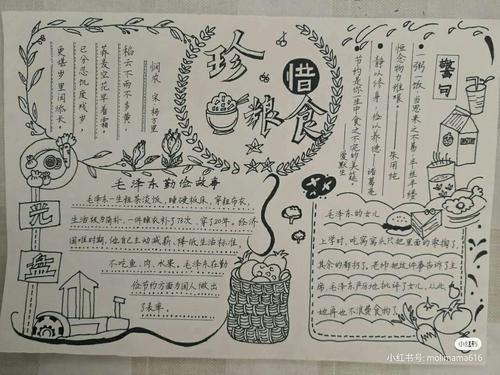 珍惜粮食
悯农 宋 杨万里
稻云不雨不多黄,
荞麦空花早着霜。
已分忍饥度残岁,
更堪岁里闰添长。
警句
一粥一饭,当思来之不易;半丝半缕,
恒念物力维艰。
朱用纯
静以修身,俭以养德
诸葛亮
节约是你一生中食之不完的美筵。
爱默生
光盘
毛泽东勤俭故事
毛泽东一生粗茶淡饭,睡硬板床,穿粗布衣,
生活极为简朴,一件睡衣补了73次,穿了20年。经济
困难时期,他自己主动减薪、降低生活标准,
不吃鱼、肉、水果。毛泽东在勤
俭节约方面为国人做出
了表率。
毛泽东的女儿
上学时,吃窝窝头只把里面的枣抠了,
其余的都扔了。老师把这件事告诉了主
席,毛泽东严厉地批评了女儿,从此
她再也不浪费食物了。
小红书
小红书号: molimama616